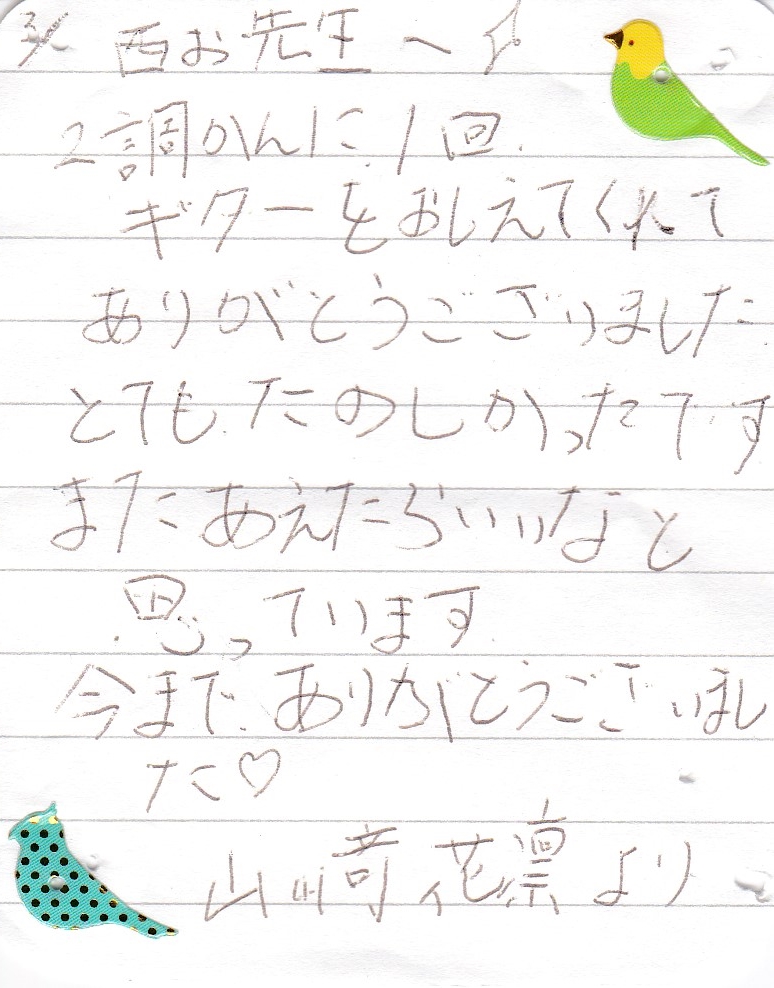 西お先生へ
2調かんに1回.
ギターをおしえてくれて
ありがとうございました
とてもたのしかったです
またあえたらいいなと
思っています
今まで、ありがとうございまし
た♡
山崎花凛より